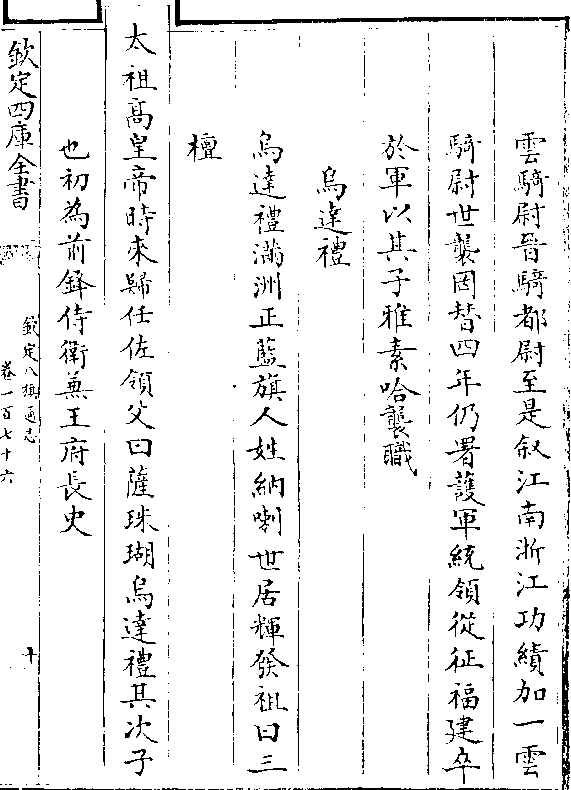 雲騎尉晉騎都尉至是叙江南浙江功績加一雲
騎尉世襲罔替四年仍署護軍統領從征福建卒
於軍以其子雅素哈襲職
烏達禮
烏達禮滿洲正藍旗人姓納喇世居輝發祖曰三
檀
太祖高皇帝時來歸任佐領父曰薩珠瑚烏達禮其次子
也初為前鋒侍衛兼王府長史
欽定四庫全書
欽定八旗通志
卷一百七十六
十